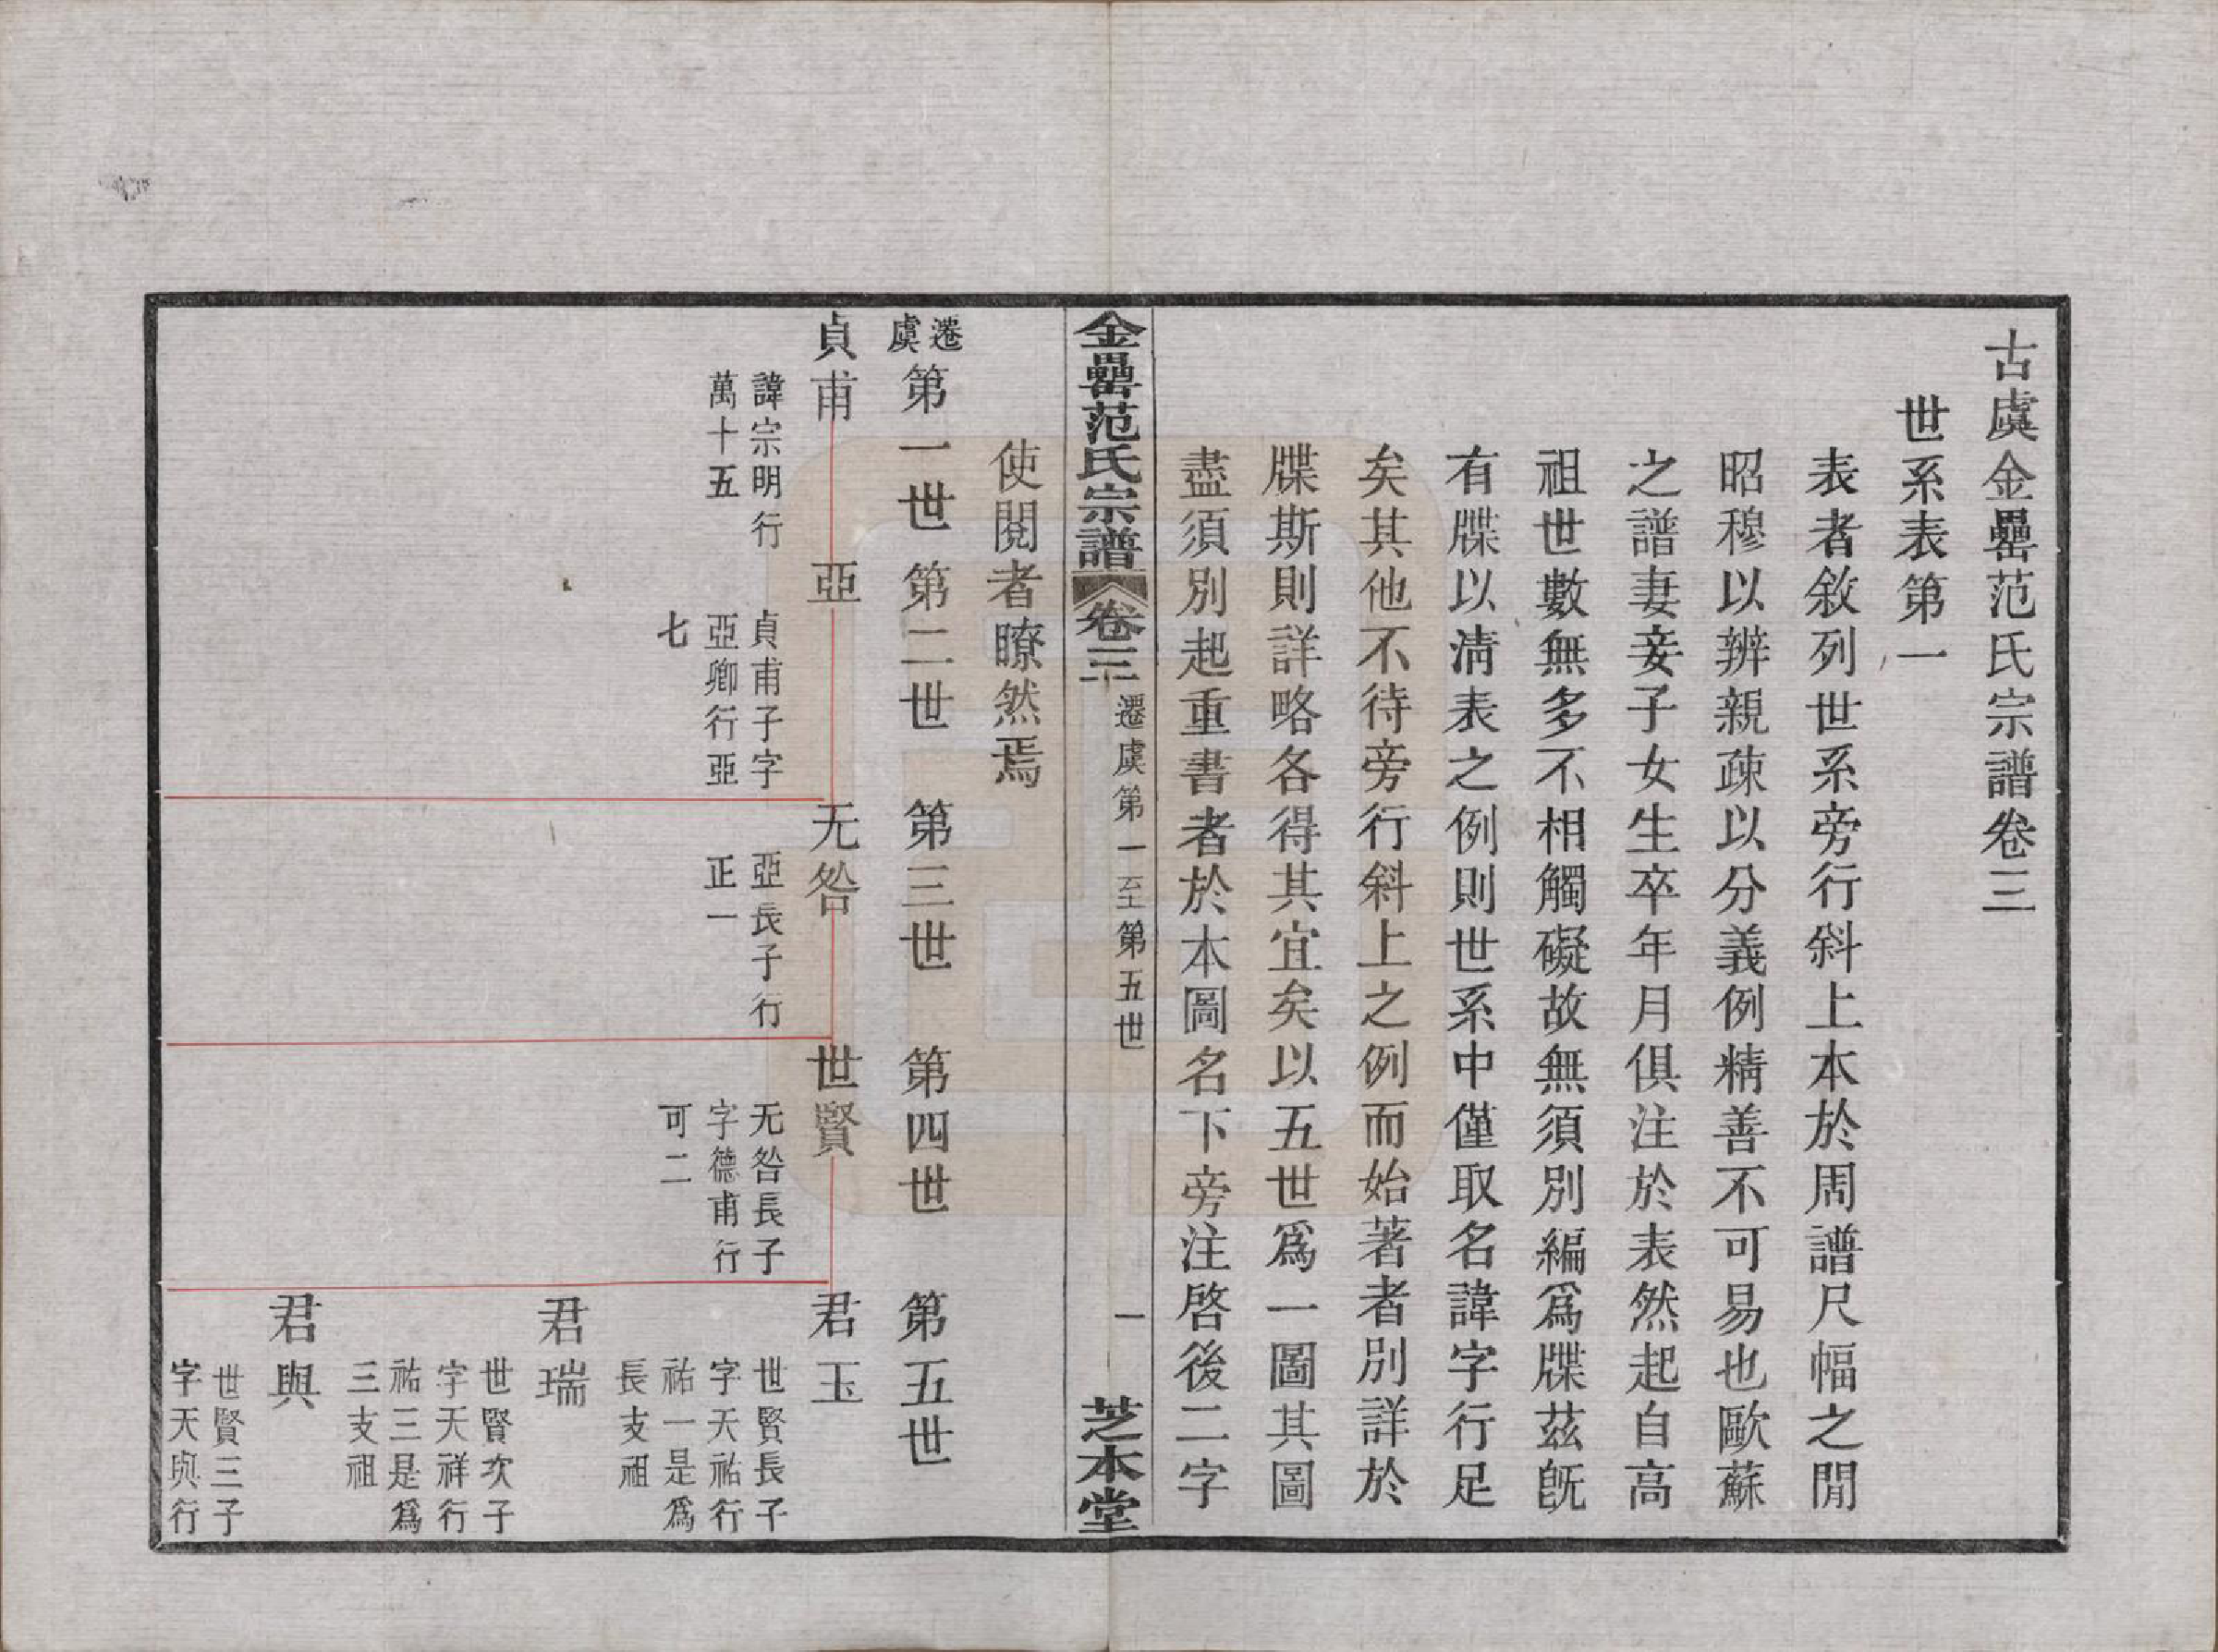 古虞金罍范氏宗譜卷三
世系表第一
表者敘列世系旁行斜上本於周譜尺幅之閒
昭穆以辨親疎以分義例精善不可易也歐蘇
之譜妻妾子女生卒年月俱注於表然起自高
祖世數無多不相觸礙故無須別編爲牒茲既
有牒以清表之例則世系中僅取名諱字行足
矣其他不待旁行斜上之例而始著者別詳於
牒斯則詳略各得其宜矣以五世爲一圖其圖
盡須別起重書者於本圖名下旁注啓後二字
金罍范氏宗譜 卷三 遷虞第一至第五世 一 芝本堂
使閱者瞭然焉
遷虞第一世 第二世 第三世 第四世 第五世
貞甫 亞 无咎 世賢 君玉
諱宗明行
萬十五
貞甫子字
亞卿行亞
七
亞長子行
正一
无咎長子
字德甫行
可二
世賢長子
字天祐行
祐一是爲
長支祖
君瑞
世賢次子
字天祥行
祐三是爲
三支祖
君與
世賢三子
字天與行